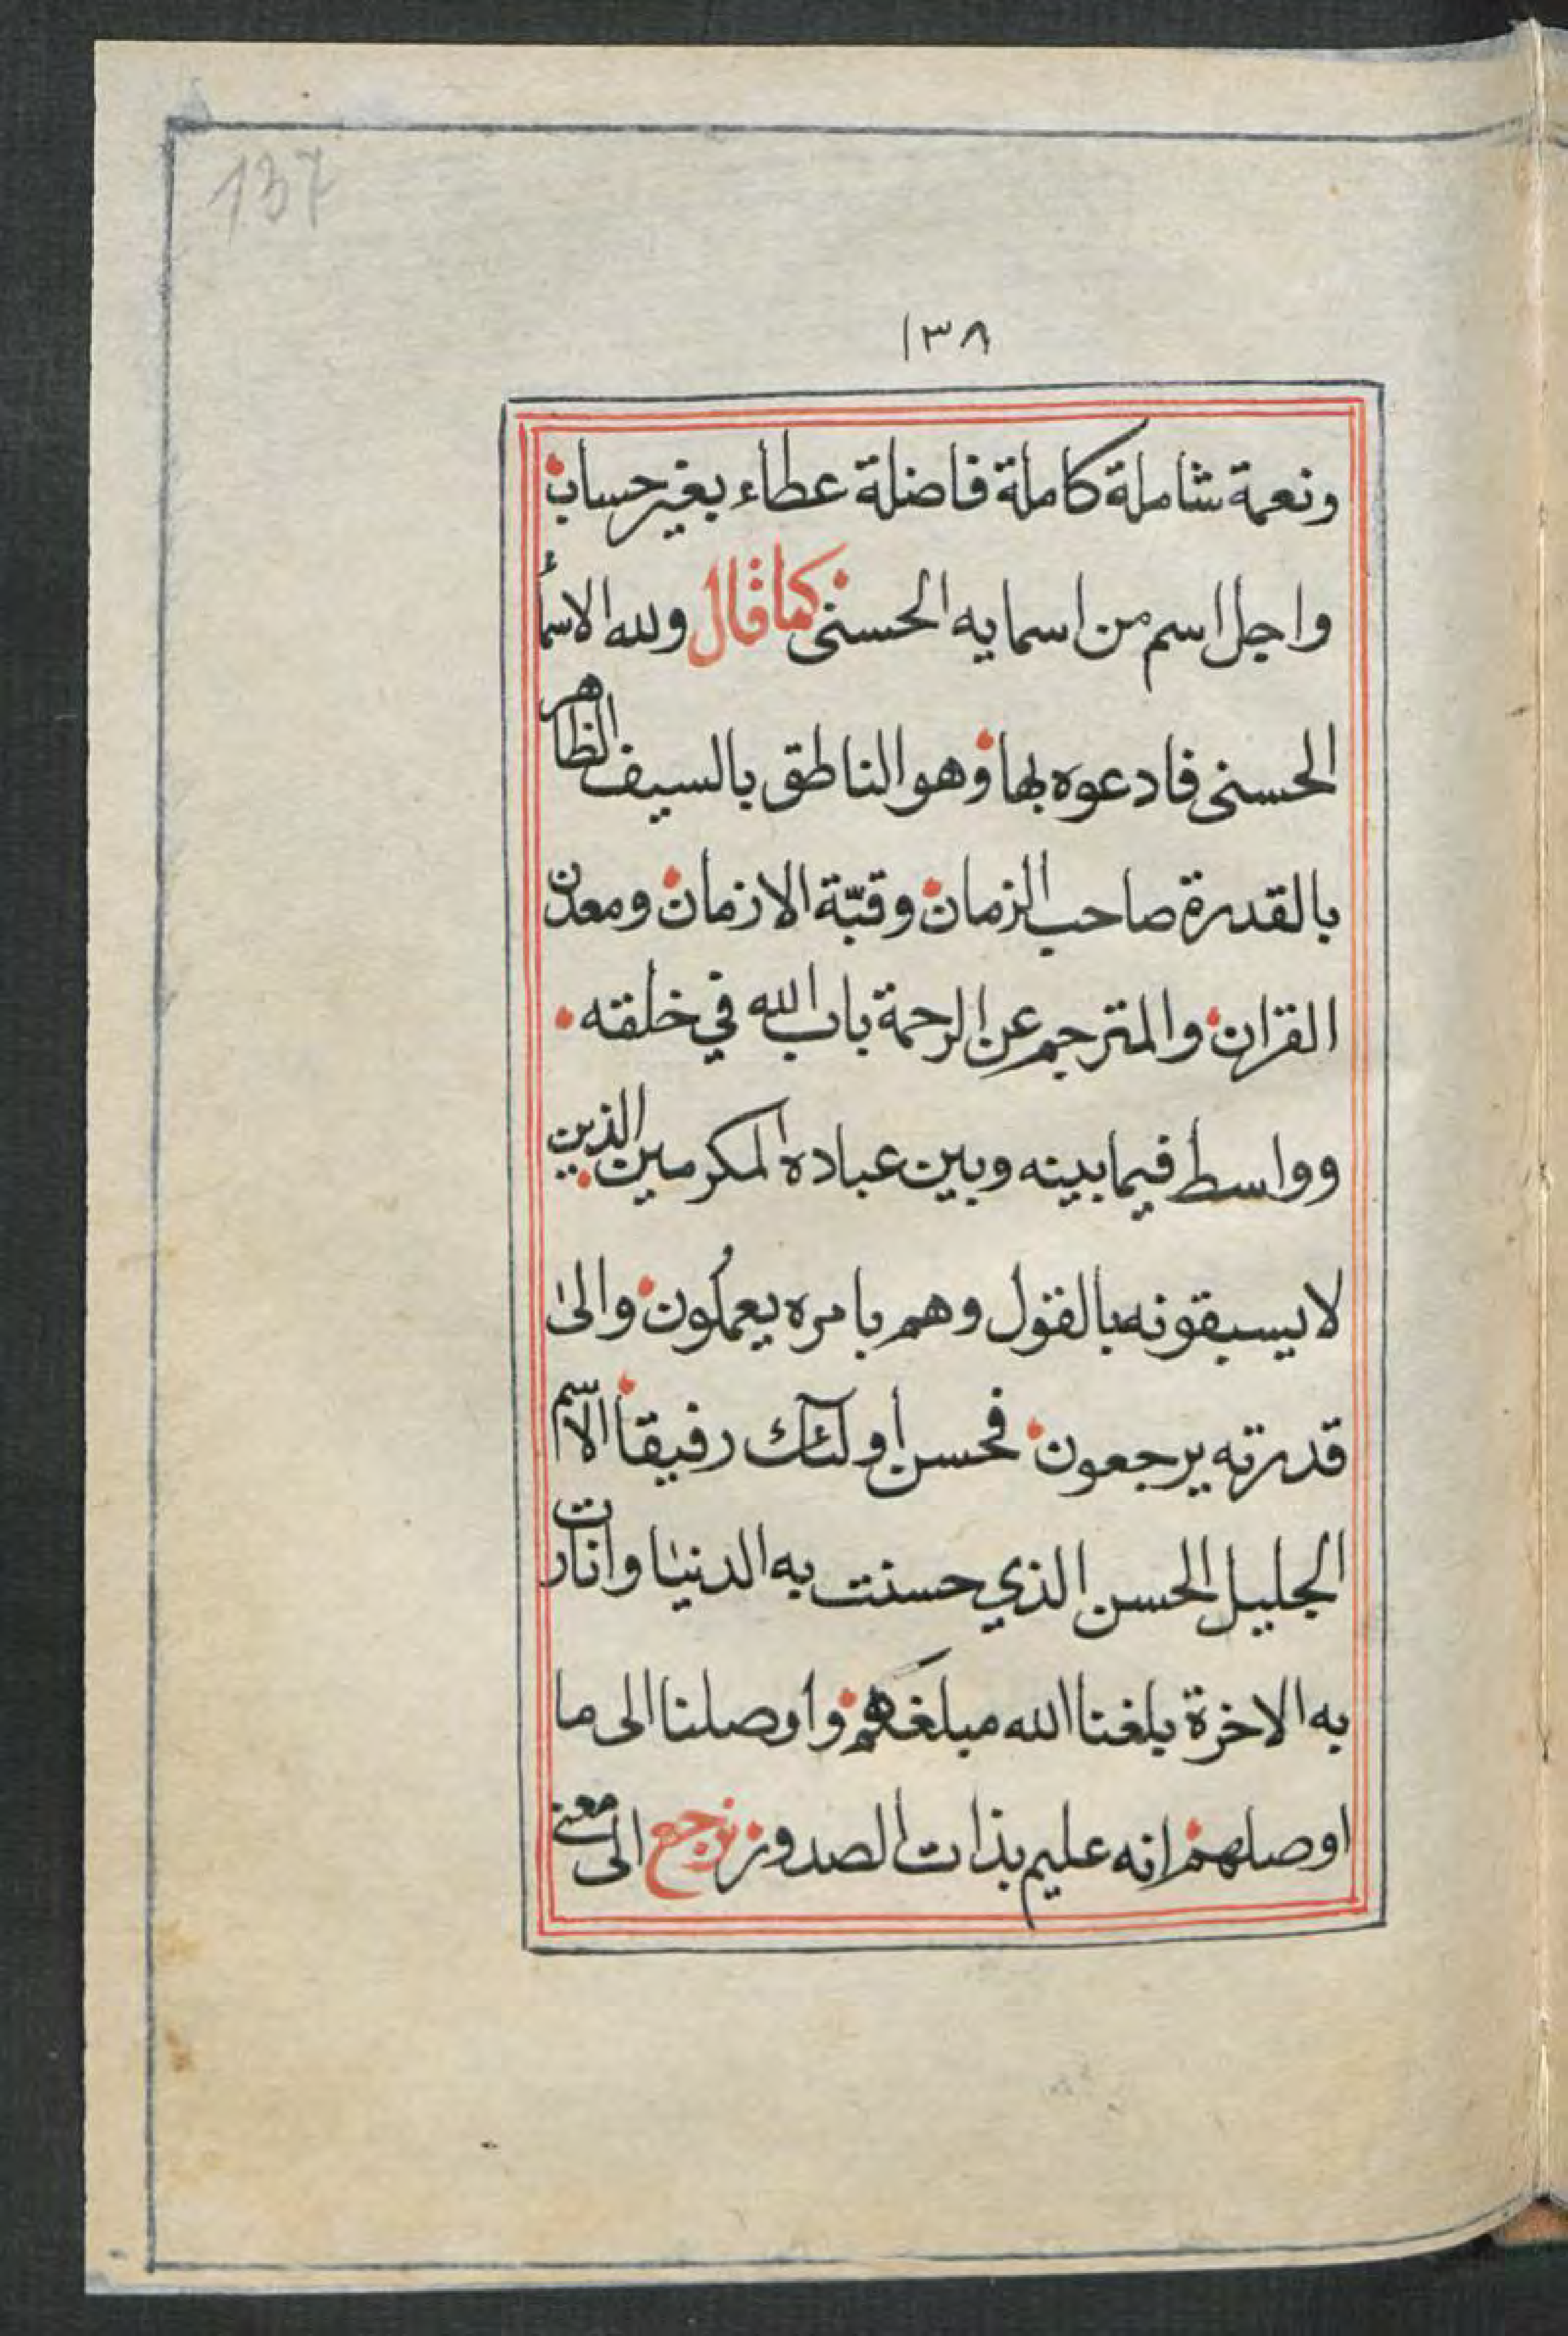 137
١٣٨
ونعمة شاملة كاملة فاضلة عطاء بغير حساب
واجل اسم من اسمايه الحسنى كما قال ولله الاسمأ
الحسنى فادعوه بها وهو الناطق بالسيف الظاهر
بالقدرة صاحب الزمان وقبّة الازمان ومعدن
القران والمترجم عن الرحمة باب الله في خلقه
وواسط فيما بينه وبين عباده المكرمين الذين
لا يسبقونه بالقول وهم بامره يعملُون والىٰ
قدرته يرجعون فحسن أولئآك رفيقا الاسّم
الجليل الحسن الذي حسنت به الدنيٰا وانارت
به الاخرة بلغنا الله مبلغكهم واوصلنا الى ما
اوصلهم انه عليم بذات الصدور نرجع الى معنى